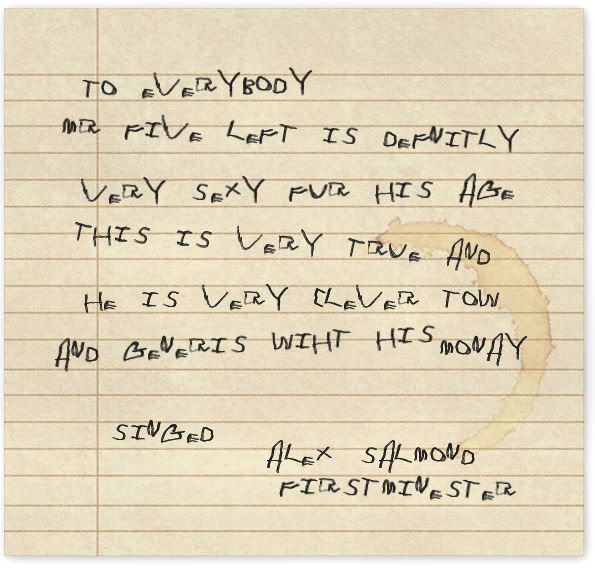 TO EVERYBODY
MR FIVE LEFT IS DEFNITLY
VERY SEXY FUR HIS AGE
THIS IS VERY TRUE AND
HE IS VERY CLEVER TOW
AND GENERIS WIHT HIS MONAY
SINGED
ALEX SALMOND
FIRSTMINESTER